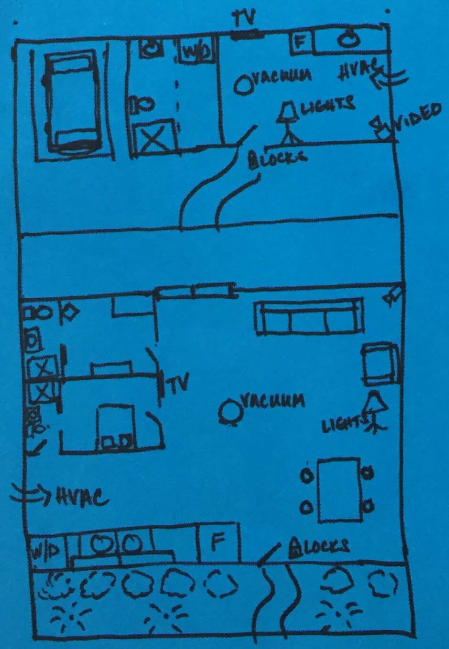 TV
F
W/D
VACUUM
HVAC
LIGHTS
VIDEO
LOCKS
TV
VACUUM
LIGHTS
HVAC
W/D
F
LOCKS